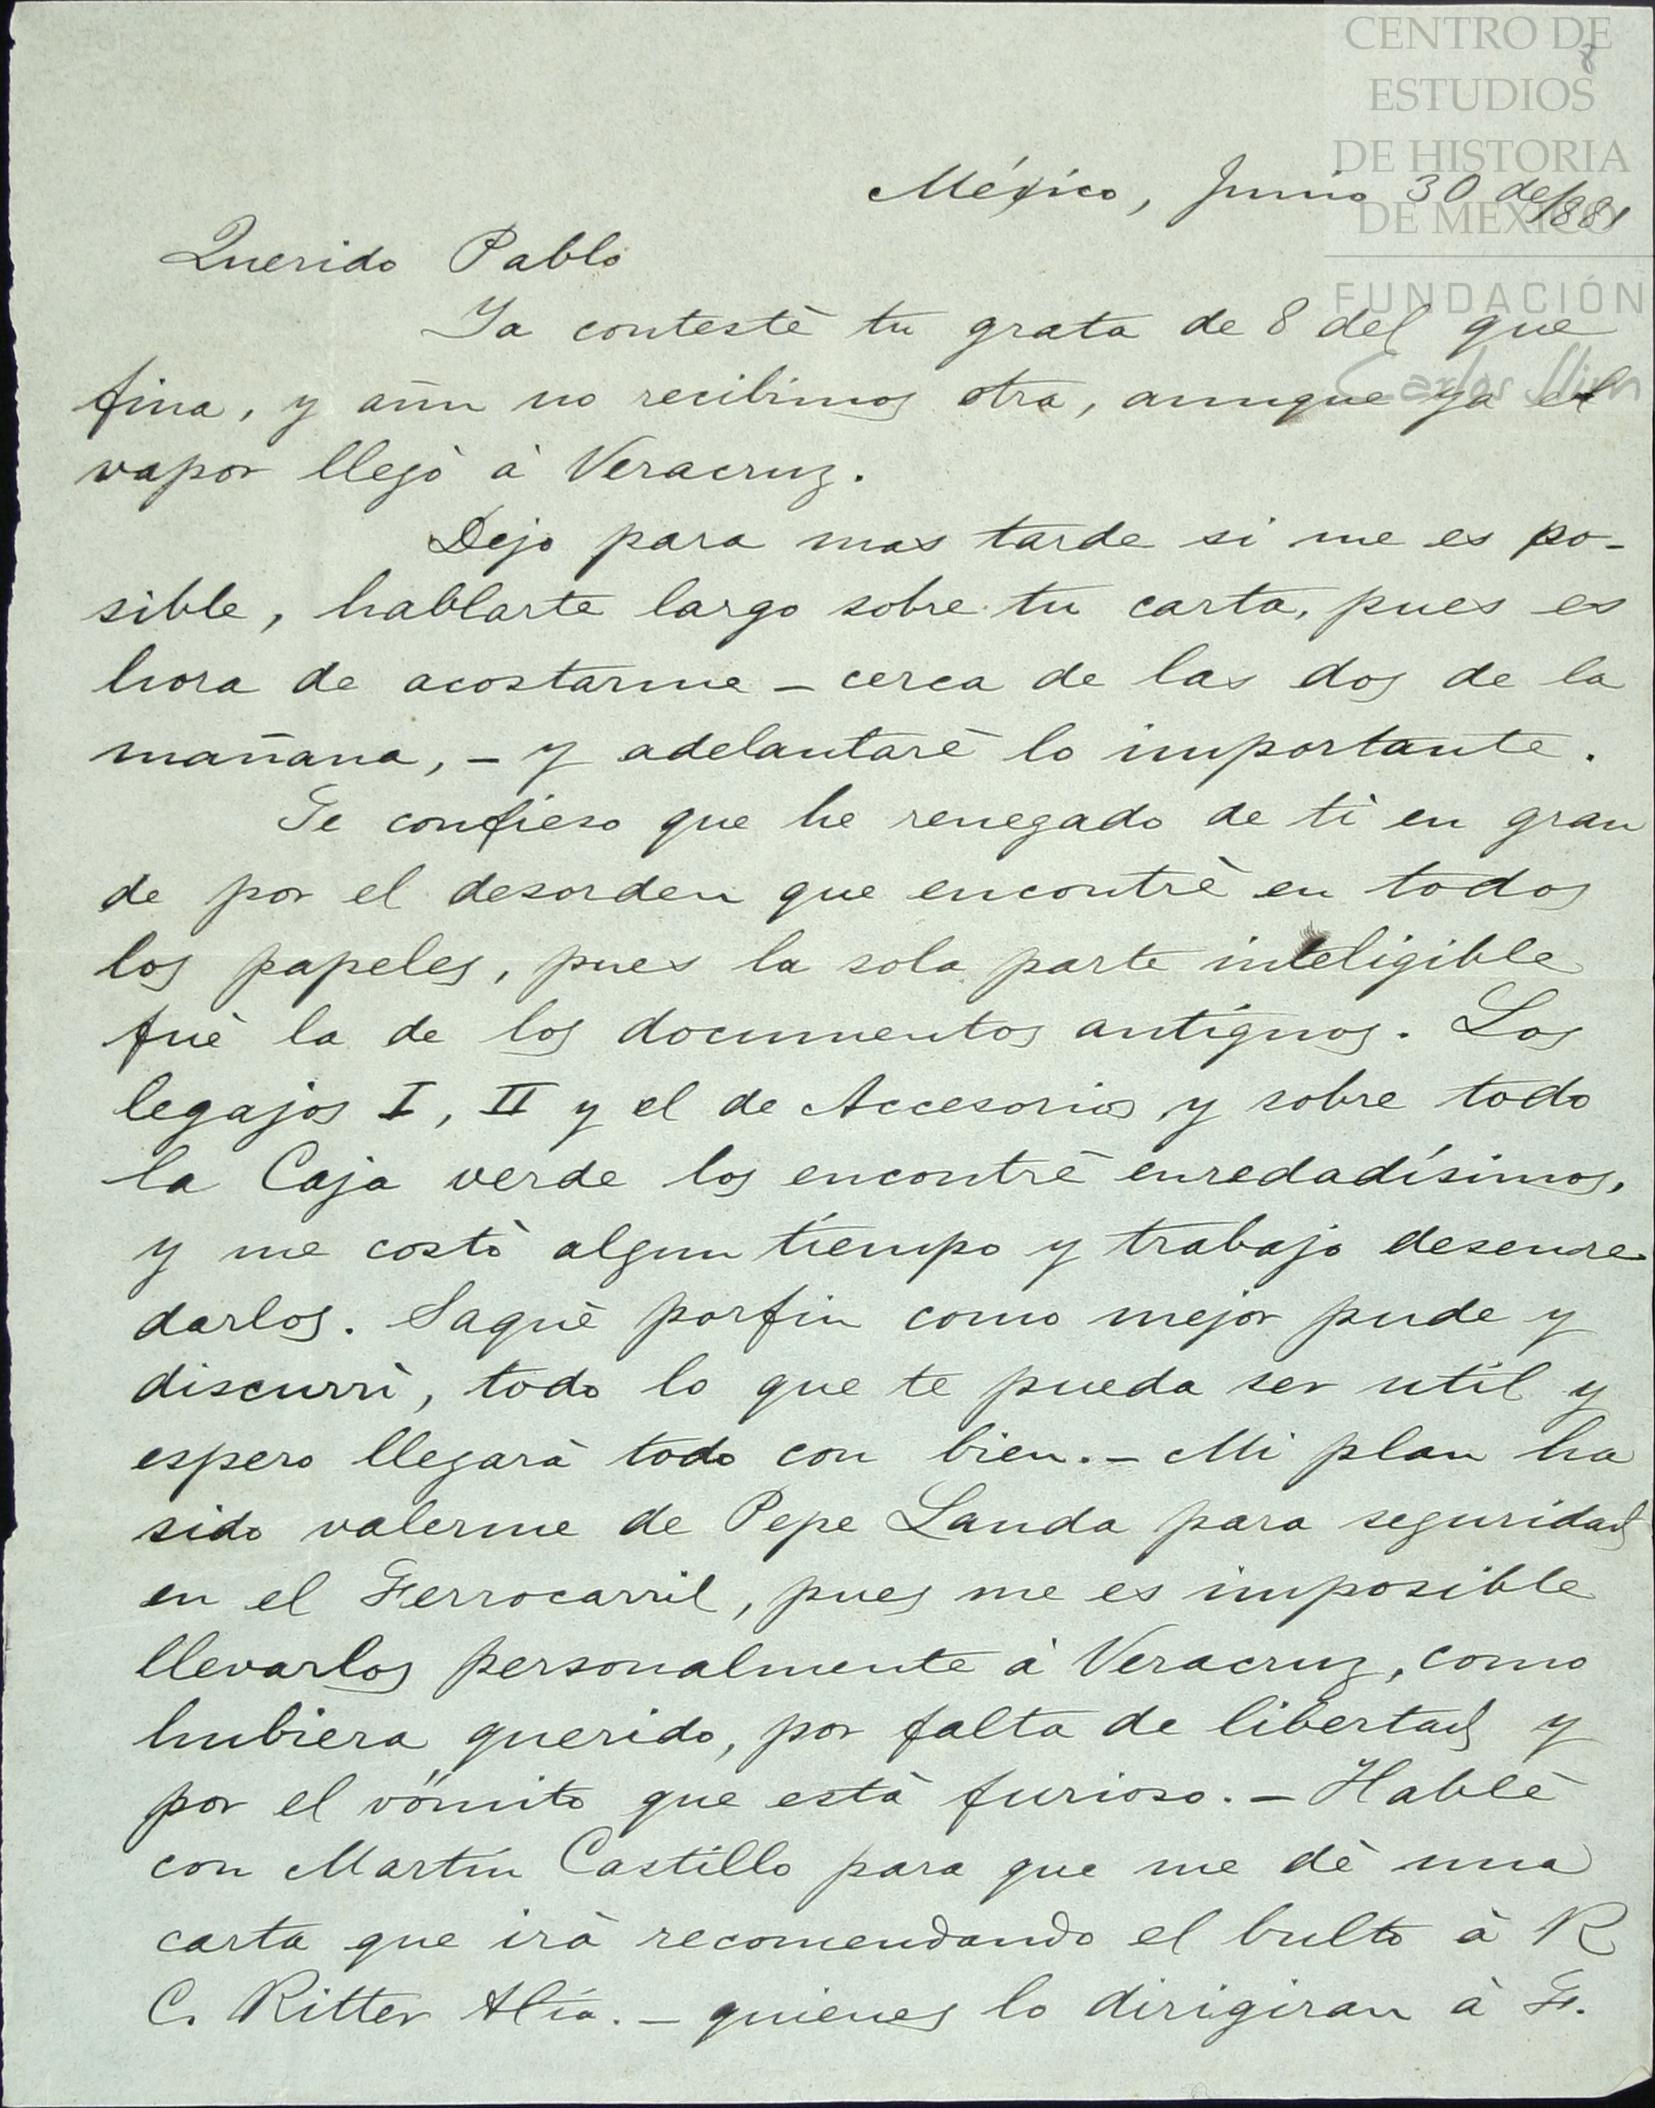 CENTRO DE
ESTUDIOS
DE HISTORIA
DE MEXICO
FUNDACIÓN
Carlos Slim
8
México, Junio 30 de 1881
Querido Pablo
Ya contestè tu grata de 8 del que
fina, y aùn no recibimos otra, aunque ya el
vapor llegò à Veracruz.
Dejo para mas tarde si me es po-
sible, hablarte largo sobre tu carta, pues es
hora de acostarme - cerca de las dos de la
mañana, - y adelantarè lo importante.
Te confieso que he renegado de tì en gran
de por el desorden que encontrè en todos
los papeles, pues la sola parte inteligible
fuè la de los documentos antiguos. Los
legajos I, II y el de Accesorios y sobre todo
la Caja verde los encontrè enredadísimos,
y me costò algun tiempo y trabajo desenre-
darlos. Saquè porfin como mejor pude y
discurrì, todo lo que te pueda ser util y
espero llegarà todo con bien. - Mi plan ha
sido valerme de Pepe Landa para seguridad
en el Ferrocarril, pues me es imposible
llevarlos personalmente à Veracruz, como
hubiera querido, por falta de libertad y
por el vòmito que està furioso. - Hablè
con Martin Castillo para que me dè una
carta que irà recomendando el bulto à R
C. Ritter y Cía. - quienes lo dirigiran à F.